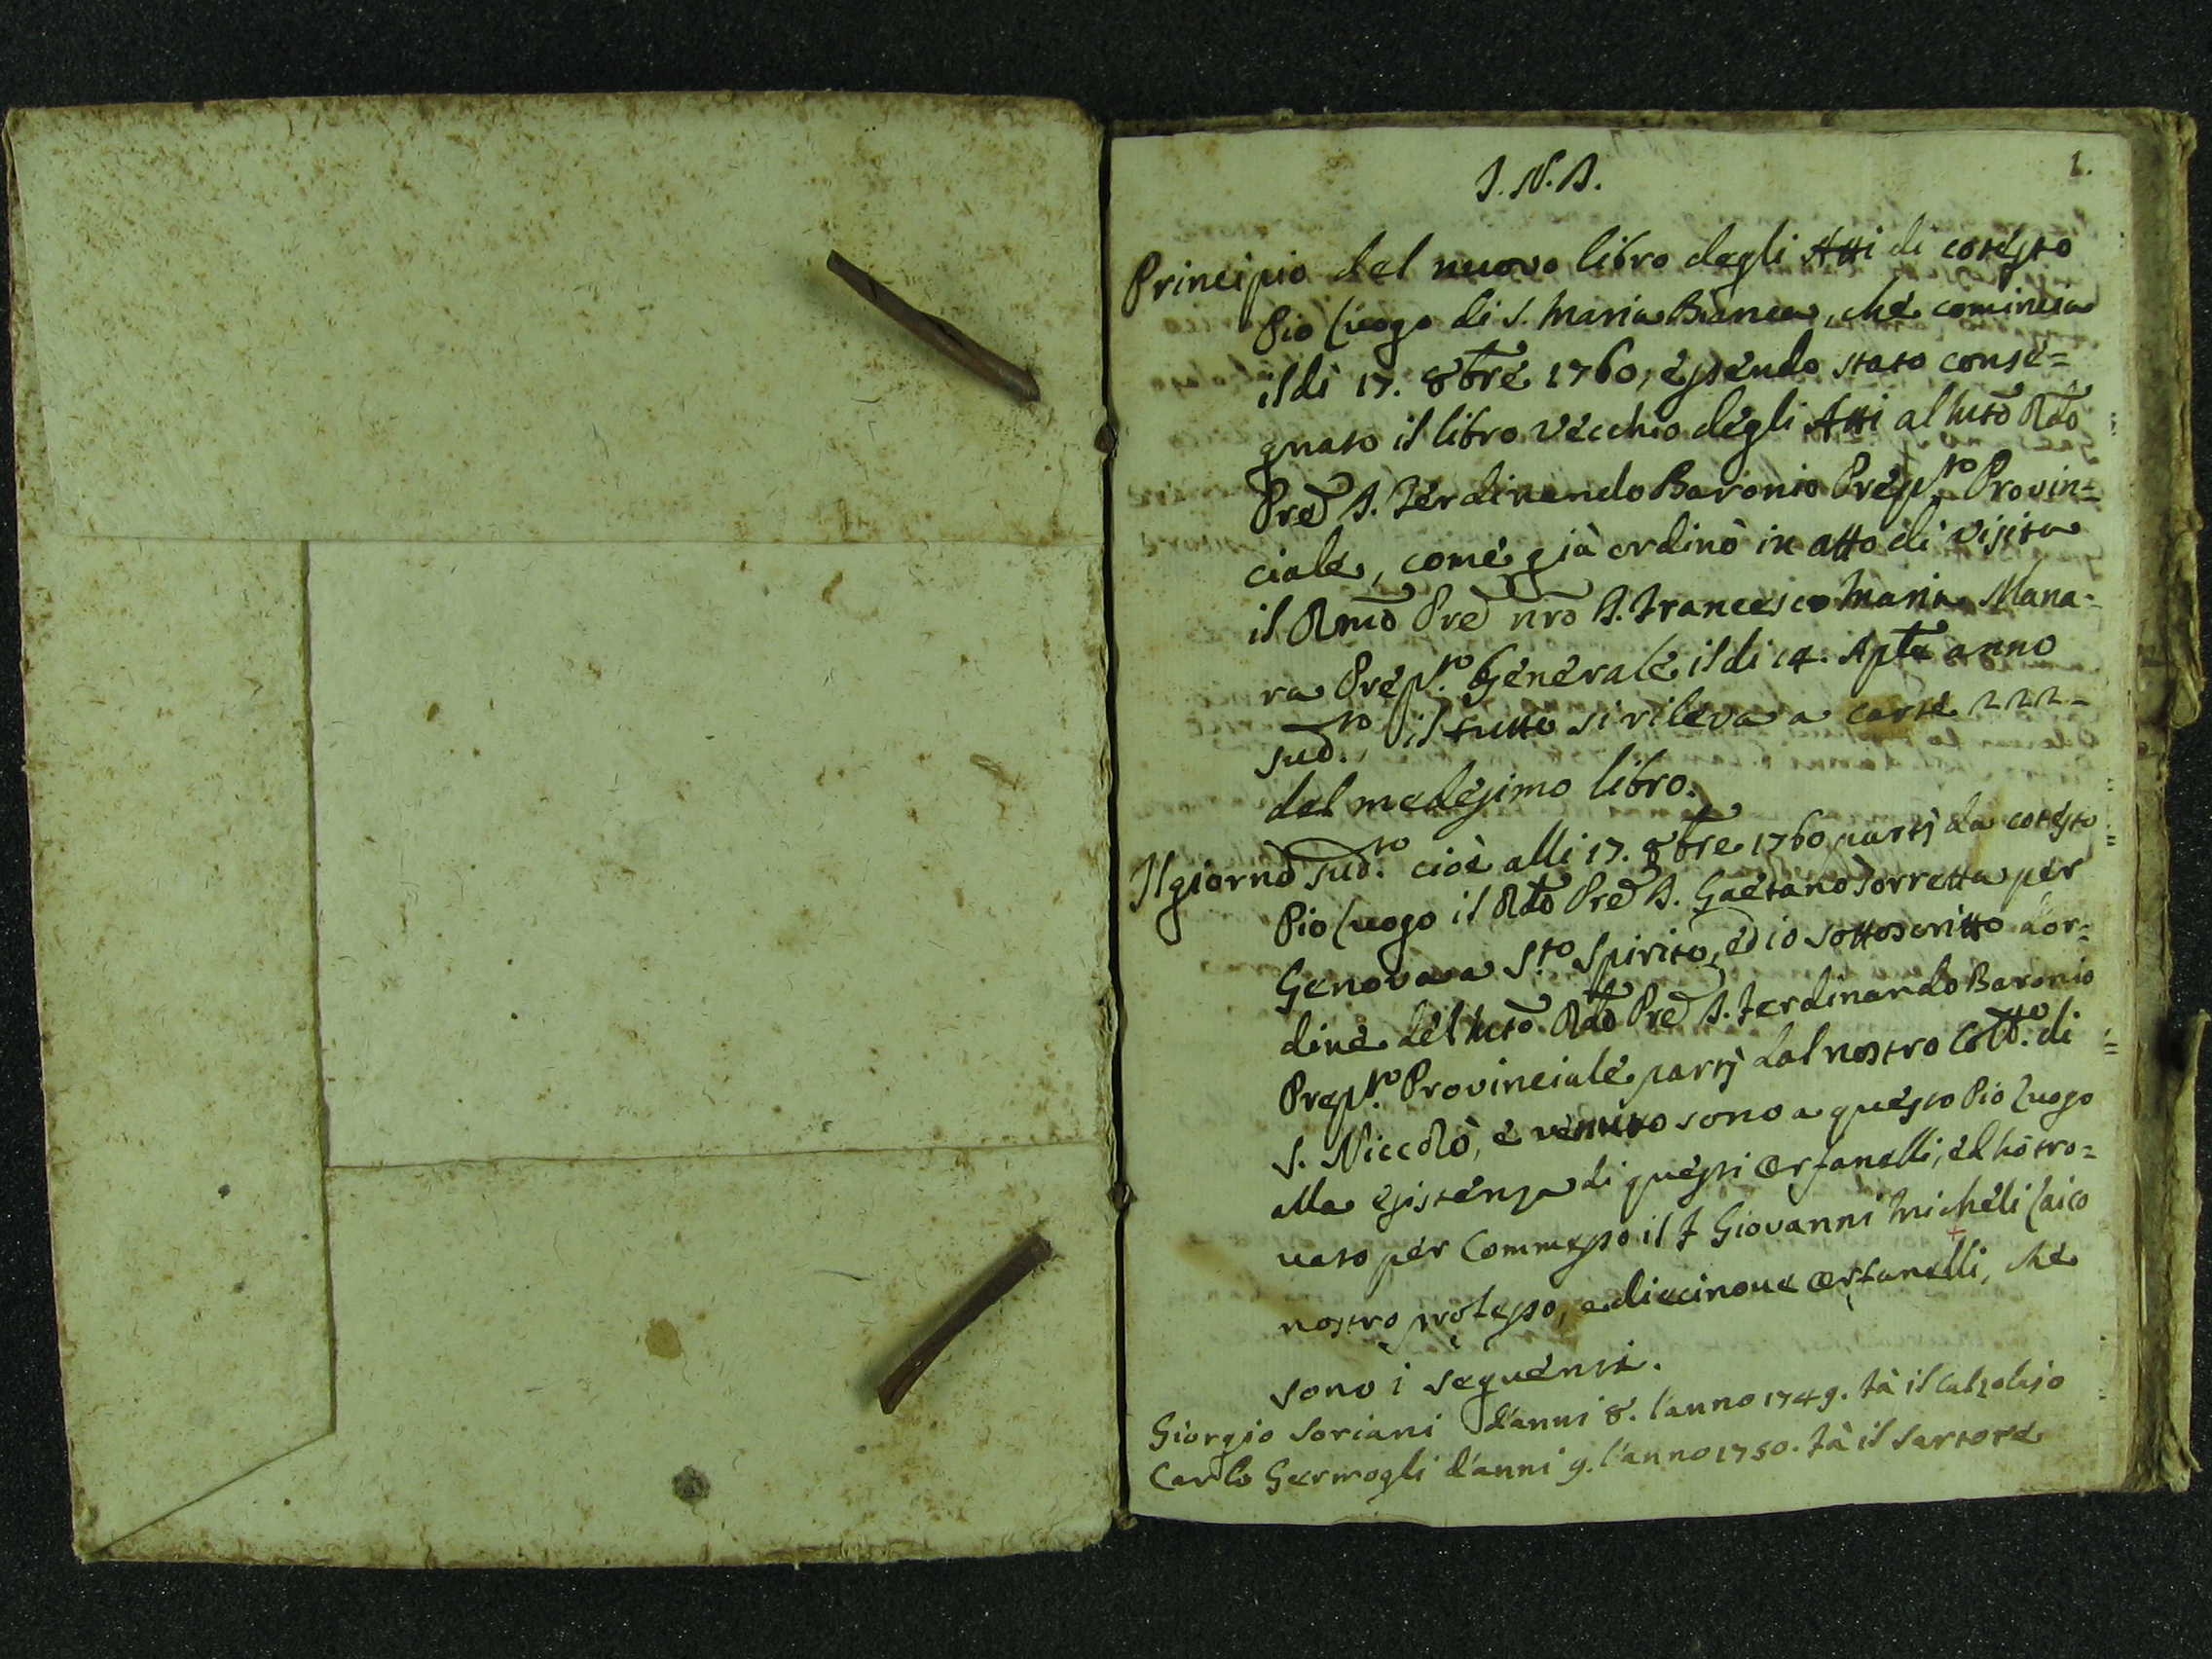 1.
J. N. D.
Principio del nuovo libro degli Atti di cotesto
Pio Luogo di S. Maria Bianca, che comincia
il dì 17. 8bre 1760, essendo stato conse=
gnato il libro vecchio degli Atti al Rdo
Pre D. Ferdinando Baronio Prepto Provin=
ciale, come già ordinò in atto di visita
il Rmo Pre nro D. Francesco Maria Mana=
ra Prepto Generale il di 14. anno
sudto, il tutto si rileva a carte 222-
del medesimo libro.
Il giorno sudto cioè alli 17. 8bre 1760 partj da cotesto
Pio Luogo il Rdo Pre D. Gaetano Torretta per
Genova a Sto Spirito, ed io sottoscritto d'or=
dine del Rdo Pre D. Ferdinando Baronio
Prepto Provinciale partj dal nostro di
S. Niccolò, e venuto sono a questo Pio Luogo
alla esistenza di questi Orfanelli, ed hò tro=
uato per Commesso il F Giovanni Micheli Laico
nostro professo, e diecinoue Orfanelli, che
sono i seguenti.
Giorgio Soriani d'anni 8. l'anno 1749. fà il Calzolajo
Carlo Germogli d'anni 9. l'anno 1750. fà il Sartore